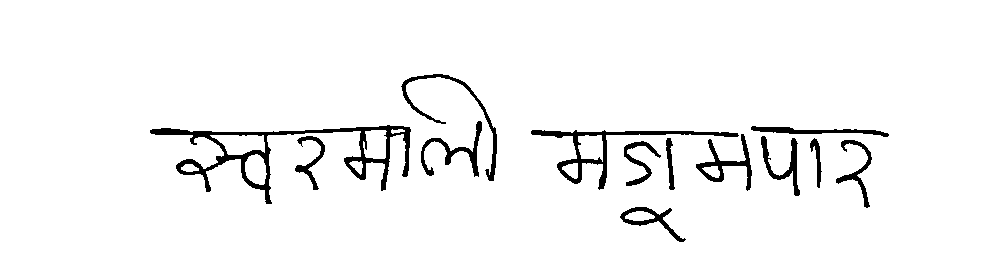 स्वरमाली मझूमपार